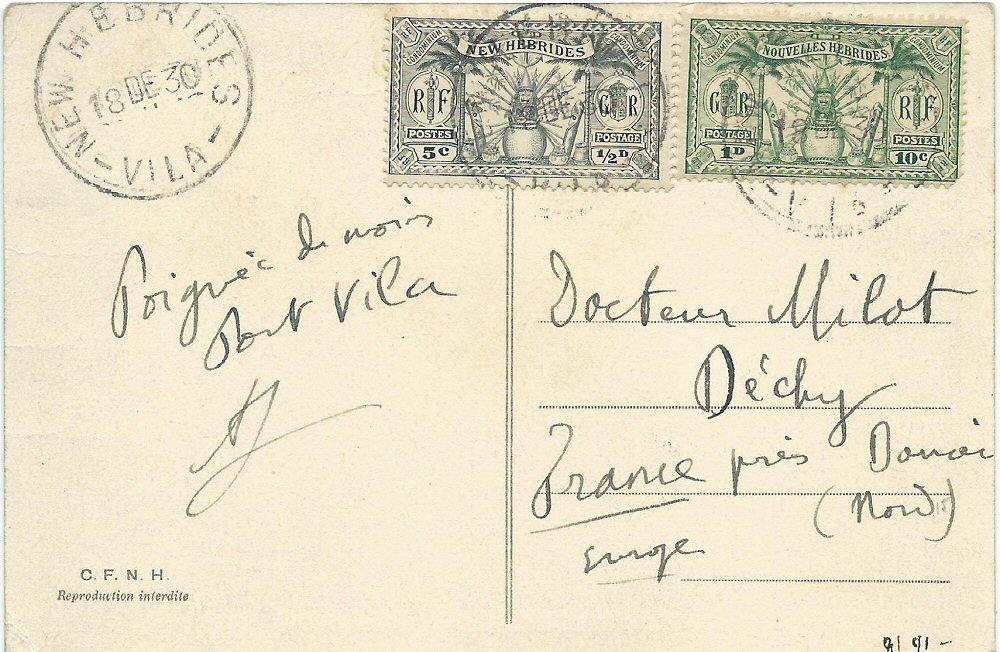 NEW HEBRIDES
18 DE 30
VILA
CONDOMINIUM
NEW HEBRIDES
CONDOMINIUM
RF
GR
POSTES
POSTAGE
5c
1/2D
CONDOMINIUM
NOUVELLES HÉBRIDES
CONDOMINIUM
GR
RF
POSTAGE
POSTES
1D
10c
Poignée de mains
Port Vila
C. F. N. H.
Reproduction interdite
Docteur Milot
Déchy
France près Douai
(Nord)
Europe